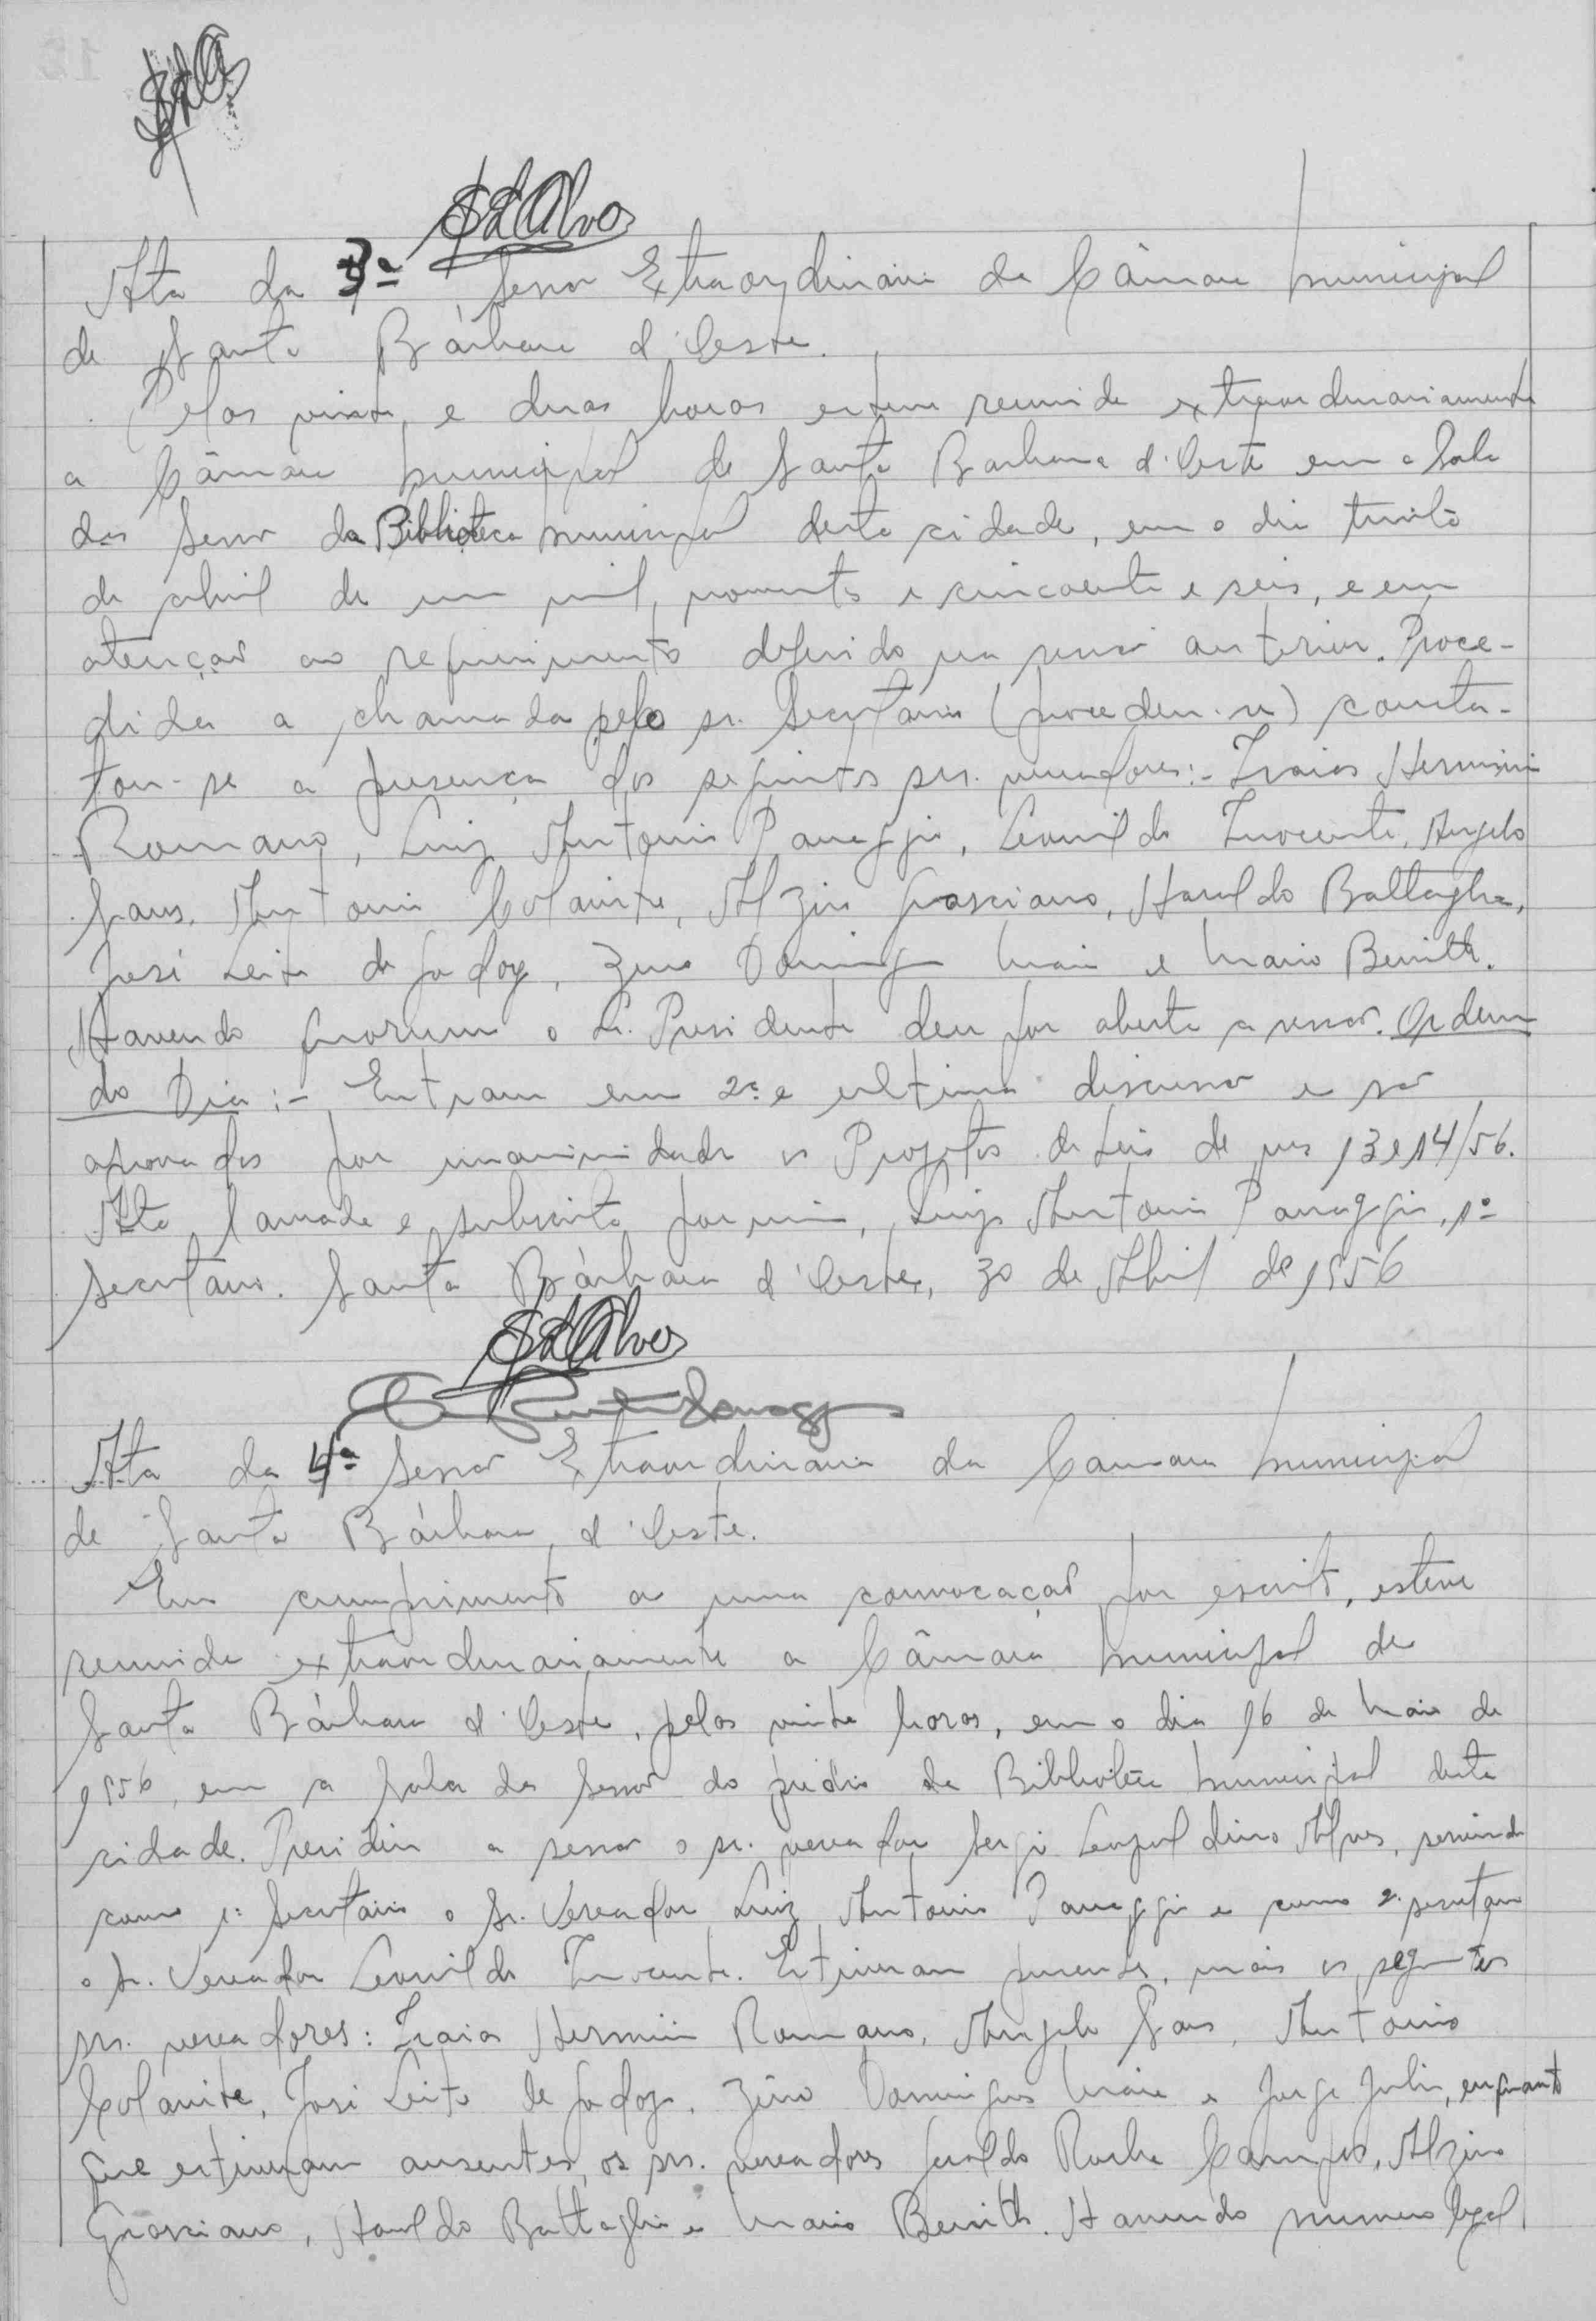 SLAlves
Ata da 3ª Sessão Extraordinária da Câmara Municipal
de Santa Bárbara d'Oeste.
Pelas vinte e duas horas esteve reunida extraordinariamente
a Câmara Municipal de Santa Barbara d'Oeste em a Sala
das Sessão da Biblioteca Municipal desta cidade, em o dia trinta
de abril de um mil, novecentos e cincoenta e seis, e em
atenção ao requerimento deferido na sessão anterior. Proce-
dida a chamada pelo sr. Secretário (procedeu-se) consta-
tou-se a presença dos seguintes srs. vereadores:- Izaias Herminio
Romano, Luiz Antonio Panaggio, Leonildo Inocente, Angelo
Sans, Antonio Colanite, Alziro Grassiano, Haroldo Battaglia,
José Leite de Godoy, Zeno Domingos Maia e Mario Benith.
Havendo quorum o Sr. Presidente deu por aberta a sessão. Ordem
do Dia:- Entram em 2ª e ultima discussão e são
aprovados por unanimidade os Projetos de Leis de nos 13 e 14/56.
Ata lavrada e subscrita por mim, Luiz Antonio Panaggio, 1º
Secretário. Santa Bárbara d'Oeste, 30 de Abril de 1956
SLAlves
Ata da 4ª Sessão Extraordinaria da Camara Municipal
de Santa Bárbara d'Oeste.
Em cumprimento a uma convocação por escrito, esteve
reunida extraordinariamente a Câmara Municipal de
Santa Bárbara d'Oeste, pelas vinte horas, em o dia 16 de Maio de
1956, em a sala de Sessão do prédio da Biblioteca Municipal desta
cidade. Presidiu a sessão o sr. vereador Sergio Leopoldino Alves, servindo
como 1º Secretário o Sr. Vereador Luiz Antonio Panaggio e como 2º secretário
o Sr. Vereador Leonildo Inocente. Estiveram presentes, mais os seguintes
srs. vereadores: Izaias Herminio Romano, Angelo Sans, Antonio
Colanite, José Leite de Godoy, Zeno Domingos Maia e Jorge Julio, enquanto
que estiveram ausentes, os srs. vereadores Geraldo Rocha Campos, Alziro
Grassiano, Haroldo Battaglia e Mario Benith. Havendo numero legal